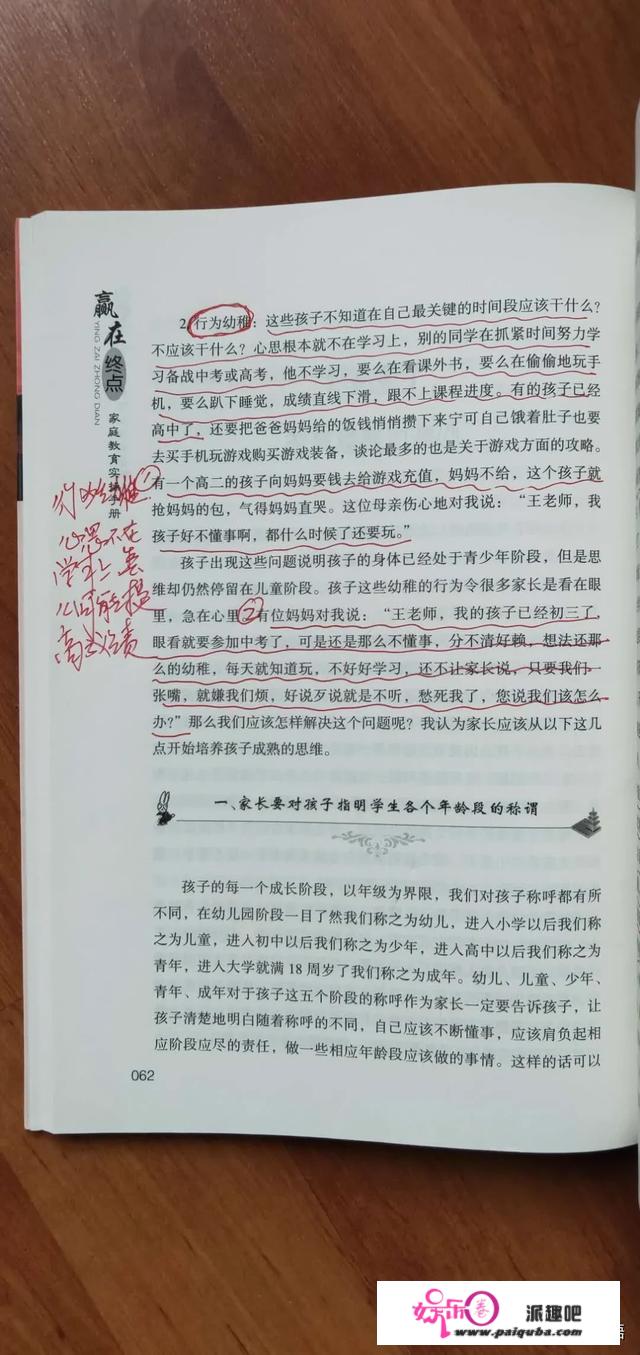 赢在终点
YING ZAI ZHONG DIAN
家庭教育实操手册
2.行为幼稚：这些孩子不知道在自己最关键的时间段应该干什么？
不应该干什么？心思根本就不在学习上，别的同学在抓紧时间努力学
习备战中考或高考，他不学习，要么在看课外书，要么在偷偷地玩手
机，要么趴下睡觉，成绩直线下滑，跟不上课程进度。有的孩子已经
高中了，还要把爸爸妈妈给的饭钱悄悄攒下来宁可自己饿着肚子也要
去买手机玩游戏购买游戏装备，谈论最多的也是关于游戏方面的攻略。
有一个高二的孩子向妈妈要钱去给游戏充值，妈妈不给，这个孩子就
抢妈妈的包，气得妈妈直哭。这位母亲伤心地对我说：“王老师，我
孩子好不懂事啊，都什么时候了还要玩。”
孩子出现这些问题说明孩子的身体已经处于青少年阶段，但是思
维却仍然停留在儿童阶段。孩子这些幼稚的行为令很多家长是看在眼
里，急在心里②有位妈妈对我说：“王老师，我的孩子已经初三了，
眼看就要参加中考了，可是还是那么不懂事，分不清好赖，想法还那
么的幼稚，每天就知道玩，不好好学习，还不让家长说，只要我们一
张嘴，就嫌我们烦，好说歹说就是不听，愁死我了，您说我们该怎么
办？”那么我们应该怎样解决这个问题呢？我认为家长应该从以下这几
点开始培养孩子成熟的思维。
①
心思不在
学习上
一、家长要对孩子指明学生各个年龄段的称谓
孩子的每一个成长阶段，以年级为界限，我们对孩子称呼都有所
不同，在幼儿园阶段一目了然我们称之为幼儿，进入小学以后我们称
之为儿童，进入初中以后我们称之为少年，进入高中以后我们称之为
青年，进入大学就满 18 周岁了我们称之为成年。幼儿、儿童、少年、
青年、成年对于孩子这五个阶段的称呼作为家长一定要告诉孩子，让
孩子清楚地明白随着称呼的不同，自己应该不断懂事，应该肩负起相
应阶段应尽的责任，做一些相应年龄段应该做的事情。这样的话可以
062
娱乐圈 派趣吧
www.paiquba.com